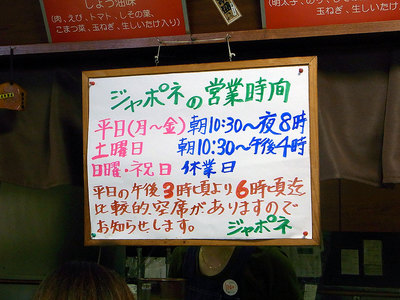 しょう油味
(肉、えび、トマト、しその葉、
こまつ菜、玉ねぎ、生しいたけ入り)
玉ねぎ、生しいたけ
ジャポネの営業時間
平日(月〜金) 朝10:30〜夜8時
土曜日 朝10:30〜午後4時
日曜・祝日 休業日
平日の午後3時頃より6時頃迄
比較的空席がありますので
お知らせします。 ジャポネ